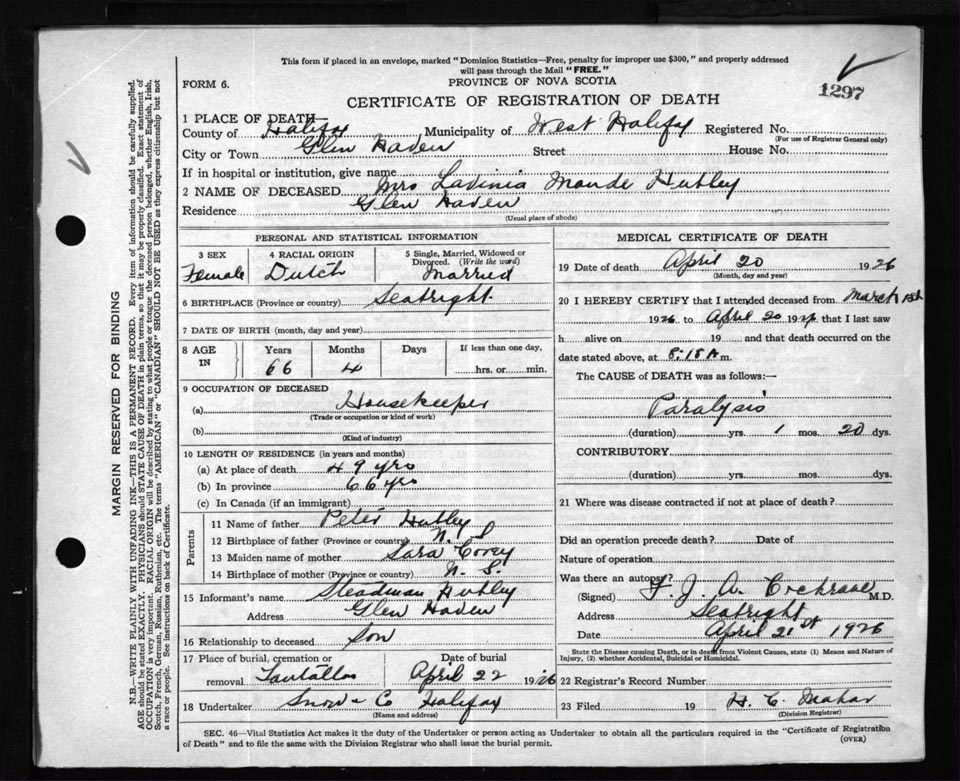 This form if placed in an envelope, marked "Dominion Statistics—Free, penalty for improper use $300," and properly addressed
will pass through the Mail "FREE."
FORM 6.
PROVINCE OF NOVA SCOTIA
1297
CERTIFICATE OF REGISTRATION OF DEATH
1 PLACE OF DEATH
County of Halifax Municipality of West Halifax Registered No.
(For use of Registrar General only)
City or Town Glen Haven Street House No.
If in hospital or institution, give name
2 NAME OF DECEASED Mrs Lavinia Maude Hubley
Residence Glen Haven
(Usual place of abode)
PERSONAL AND STATISTICAL INFORMATION
3 SEX 4 RACIAL ORIGIN 5 Single, Married, Widowed or
Divorced. (Write the word)
Female Dutch Married
6 BIRTHPLACE (Province or country) Seabright
7 DATE OF BIRTH (month, day and year)
8 AGE IN Years Months Days If less than one day,
66 4 hrs. or min.
9 OCCUPATION OF DECEASED
(a) Housekeeper
(Trade or occupation or kind of work)
(b)
(Kind of industry)
10 LENGTH OF RESIDENCE (in years and months)
(a) At place of death 49 yrs
(b) In province 66 yrs
(c) In Canada (if an immigrant)
Parents
11 Name of father Peter Hubley
12 Birthplace of father (Province or country) N. S
13 Maiden name of mother Sara Corey
14 Birthplace of mother (Province or country) N. S.
15 Informant's name Steadman Hubley
Address Glen Haven
16 Relationship to deceased Son
17 Place of burial, cremation or Date of burial
removal Tantallon April 22 1926
18 Undertaker Snow & Co Halifax
(Name and address)
MEDICAL CERTIFICATE OF DEATH
19 Date of death April 20 1926
(Month, day and year)
20 I HEREBY CERTIFY that I attended deceased from March 1st
1926 to April 20 1926 that I last saw
h alive on 19 and that death occurred on the
date stated above, at 8:15 A m.
The CAUSE of DEATH was as follows:—
Paralysis
(duration) yrs. 1 mos. 20 dys.
CONTRIBUTORY
(duration) yrs. mos. dys.
21 Where was disease contracted if not at place of death?
Did an operation precede death? Date of
Nature of operation
Was there an autopsy?
(Signed) F. J. A. Cochrane M.D.
Address Seabright
Date April 21st 1926
State the Disease causing Death, or in death from Violent Causes, state (1) Means and Nature of
Injury, (2) whether Accidental, Suicidal or Homicidal.
22 Registrar's Record Number
23 Filed 19 H. C.
(Division Registrar)
SEC. 46—Vital Statistics Act makes it the duty of the Undertaker or person acting as Undertaker to obtain all the particulars required in the "Certificate of Registration
of Death" and to file the same with the Division Registrar who shall issue the burial permit.
(OVER)
MARGIN RESERVED FOR BINDING
N.B.—WRITE PLAINLY, WITH UNFADING INK—THIS IS A PERMANENT RECORD. Every item of information should be carefully supplied.
AGE should be stated EXACTLY. PHYSICIANS should STATE CAUSE OF DEATH in plain terms, so that it may be properly classified. Exact statement of
OCCUPATION is very important. RACIAL ORIGIN will be described by stating to what people or tongue the deceased person belonged, whether English, Irish,
Scotch, French, German, Russian, Ruthenian, etc. The terms "AMERICAN" or "CANADIAN" SHOULD NOT BE USED as they express citizenship but not
a race or people. See instructions on back of Certificate.